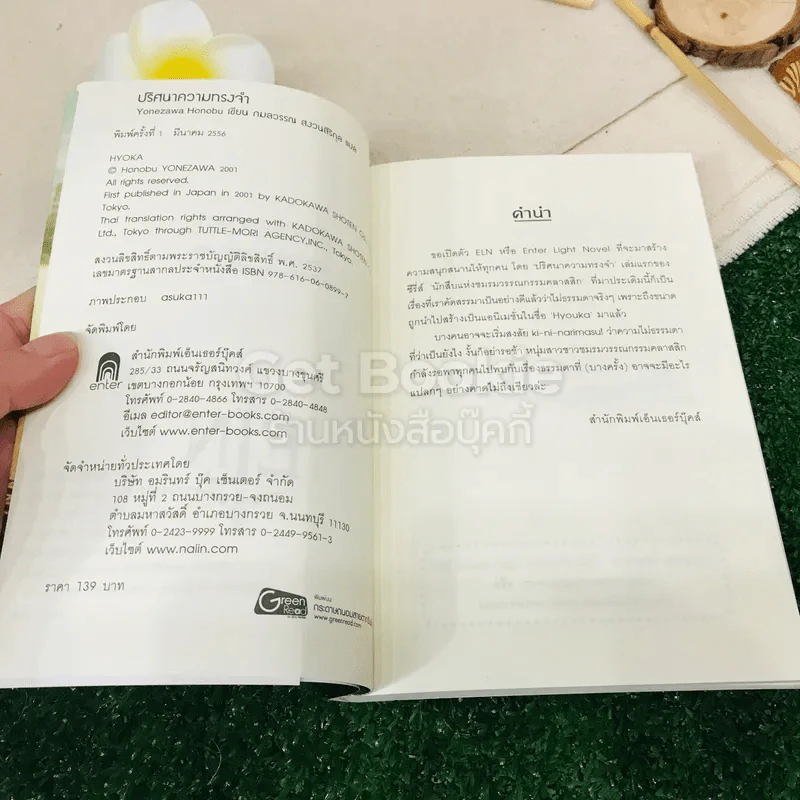 ปริศนาความทรงจำ
Yonezawa Honobu เขียน กมลวรรณ สงวนสิริกุล แปล
พิมพ์ครั้งที่ 1 มีนาคม 2556
HYOKA
© Honobu YONEZAWA 2001
All rights reserved.
First published in Japan in 2001 by KADOKAWA SHOTEN CO.,
Tokyo.
Thai translation rights arranged with KADOKAWA SHOTEN
Ltd., Tokyo through TUTTLE-MORI AGENCY,INC., Tokyo.
สงวนลิขสิทธิ์ตามพระราชบัญญัติลิขสิทธิ์ พ.ศ. 2537
เลขมาตรฐานสากลประจำหนังสือ ISBN 978-616-06-0899-7
ภาพประกอบ asuka111
จัดพิมพ์โดย
enter
สำนักพิมพ์เอ็นเธอร์บุ๊คส์
285/33 ถนนจรัญสนิทวงศ์ แขวงบางขุนศรี
เขตบางกอกน้อย กรุงเทพฯ 10700
โทรศัพท์ 0-2840-4866 โทรสาร 0-2840-4848
อีเมล editor@enter-books.com
เว็บไซต์ www.enter-books.com
จัดจำหน่ายทั่วประเทศโดย
บริษัท อมรินทร์ บุ๊ค เซ็นเตอร์ จำกัด
108 หมู่ที่ 2 ถนนบางกรวย-จงถนอม
ตำบลมหาสวัสดิ์ อำเภอบางกรวย จ.นนทบุรี 11130
โทรศัพท์ 0-2423-9999 โทรสาร 0-2449-9561-3
เว็บไซต์ www.naiin.com
ราคา 139 บาท
Green Read
พิมพ์บน
กระดาษถนอมสายตา
www.greenread.com
คำนำ
ขอเปิดตัว ELN หรือ Enter Light Novel ที่จะมาสร้าง
ความสนุกสนานให้ทุกคน โดย 'ปริศนาความทรงจำ' เล่มแรกของ
ซีรี่ส์ 'นักสืบแห่งชมรมวรรณกรรมคลาสสิก' ที่มาประเดิมนี้ก็เป็น
เรื่องที่เราคัดสรรมาเป็นอย่างดีแล้วว่าไม่ธรรมดาจริงๆ เพราะถึงขนาด
ถูกนำไปสร้างเป็นแอนิเมชั่นในชื่อ 'Hyouka' มาแล้ว
บางคนอาจจะเริ่มสงสัย ki-ni-narimasu! ว่าความไม่ธรรมดา
ที่ว่าเป็นยังไง งั้นก็อย่ารอช้า หนุ่มสาวชาวชมรมวรรณกรรมคลาสสิก
กำลังรอพาทุกคนไปพบกับเรื่องธรรมดาที่ (บางครั้ง) อาจจะมีอะไร
แปลกๆ อย่างคาดไม่ถึงเชียวล่ะ
สำนักพิมพ์เอ็นเธอร์บุ๊คส์
Get Bookie
ร้านหนังสือบุ๊คกี้